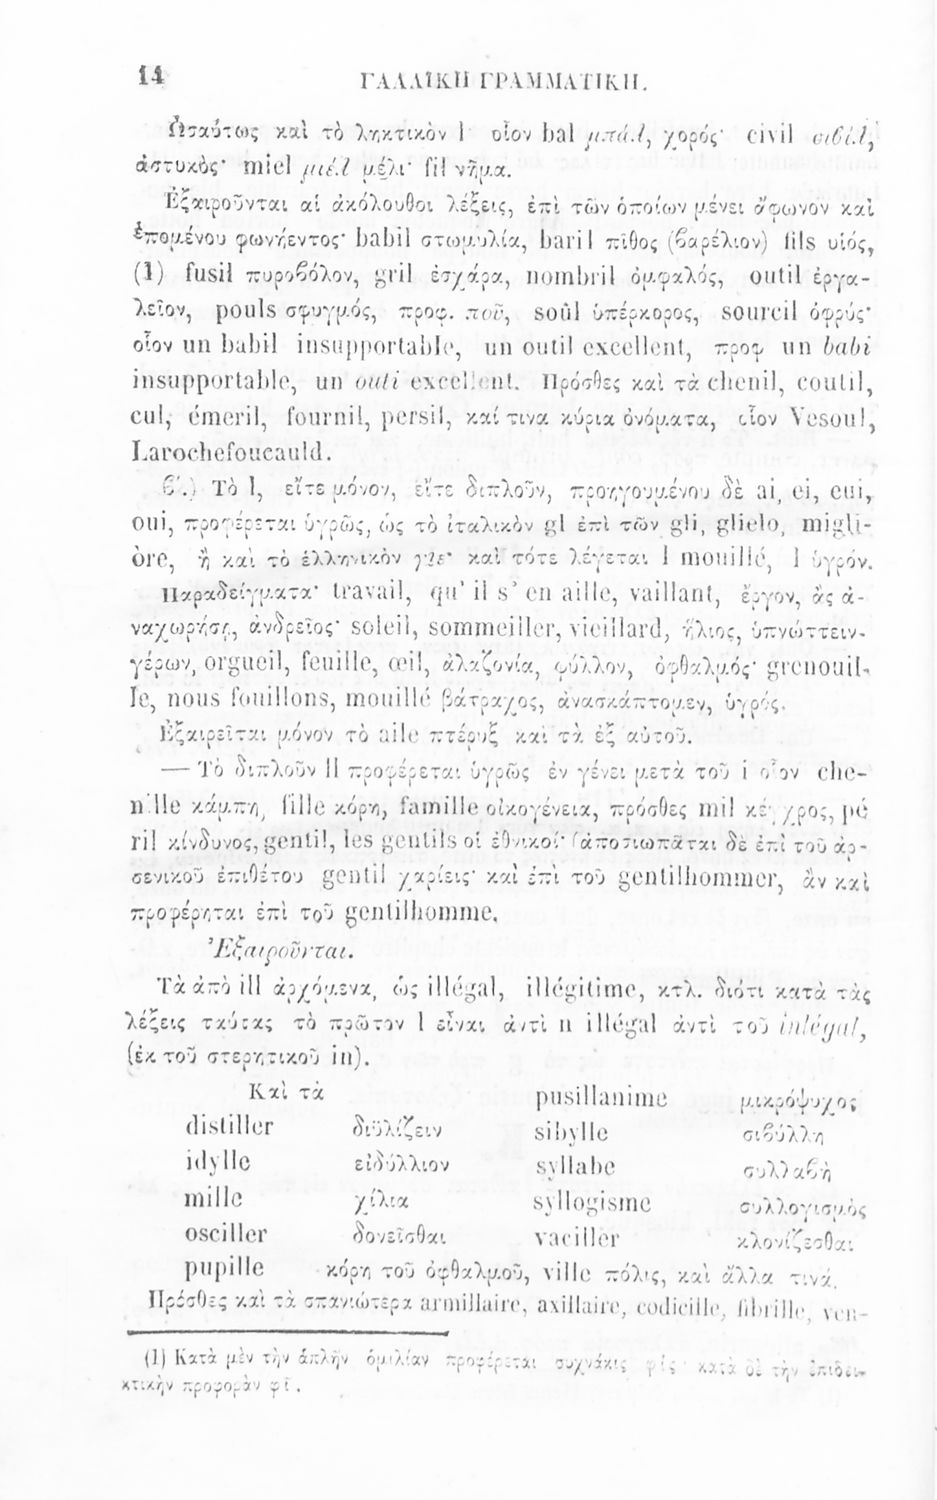 14 ΓΑΛΛΙΚΗ ΓΡΑΜΜΑΤΙΚΗ.
Ὡσαύτως καὶ τὸ ληκτικὸν l οἷον bal μπάλ, χορός· civil σιβίλ,
ἀστυκὸς· miel μιέλ μέλι· fil νῆμα.
Ἐξαιροῦνται αἱ ἀκόλουθοι λέξεις, ἐπὶ τῶν ὁποίων μένει ἄφωνον καὶ
ἑπομένου φωνήεντος· babil στωμυλία, baril πίθος (βαρέλιον) fils υἱός,
(1) fusil πυροβόλον, gril ἐσχάρα, nombril ὀμφαλός, outil ἐργα-
λεῖον, pouls σφυγμός, προφ. ποῦ, soûl ὑπέρκορος, sourcil ὀφρύς·
οἷον un babil insupportable, un outil excellent, προφ un babi
insupportable, un outi excellent. Πρόσθες καὶ τὰ chenil, coutil,
cul, émeril, fournil, persil, καί τινα κύρια ὀνόματα, οἷον Vesoul,
Larochefoucauld.
β'.) Τὸ l, εἴτε μόνον, εἴτε διπλοῦν, προηγουμένου δὲ ai, ei, eui,
oui, προφέρεται ὑγρῶς, ὡς τὸ ἰταλικὸν gl ἐπὶ τῶν gli, glielo, migli-
òre, ἢ καὶ τὸ ἑλληνικὸν γλε· καὶ τότε λέγεται l mouillé, l ὑγρόν.
Παραδείγματα· travail, qu' il s' en aille, vaillant, ἔργον, ἂς ἀ-
ναχωρήσῃ, ἀνδρεῖος· soleil, sommeiller, vieillard, ἥλιος, ὑπνώττειν,
γέρων, orgueil, feuille, œil, ἀλαζονία, φύλλον, ὀφθαλμός· grenouil-
le, nous fouillons, mouillé βάτραχος, ἀνασκάπτομεν, ὑγρός.
Ἐξαιρεῖται μόνον τὸ aile πτέρυξ καὶ τὰ ἐξ αὐτοῦ.
— Τὸ διπλοῦν ll προφέρεται ὑγρῶς ἐν γένει μετὰ τοῦ i οἷον che-
nille κάμπη, fille κόρη, famille οἰκογένεια, πρόσθες mil κέγχρος, pé
ril κίνδυνος, gentil, les gentils οἱ ἐθνικοί· ἀποσιωπᾶται δὲ ἐπὶ τοῦ ἀρ-
σενικοῦ ἐπιθέτου gentil χαρίεις· καὶ ἐπὶ τοῦ gentilhommer, ἂν καὶ
προφέρηται ἐπὶ τοῦ gentilhomme.
Ἐξαιροῦνται.
Τὰ ἀπὸ ill ἀρχόμενα, ὡς illégal, illégitime, κτλ. διότι κατὰ τὰς
λέξεις ταύτας τὸ πρῶτον l εἶναι ἀντὶ n illégal ἀντὶ τοῦ inlégal,
(ἐκ τοῦ στερητικοῦ in).
Καὶ τὰ pusillanime μικρόψυχος
distiller διϋλίζειν sibylle σιβύλλη
idylle εἰδύλλιον syllabe συλλαβὴ
mille χίλια syllogisme συλλογισμὸς
osciller δονεῖσθαι vaciller κλονίζεσθαι
pupille κόρη τοῦ ὀφθαλμοῦ, ville πόλις, καὶ ἄλλα τινά.
Πρόσθες καὶ τὰ σπανιώτερα armillaire, axillaire, codicille, fibrille, ven-
(1) Κατὰ μὲν τὴν ἁπλῆν ὁμιλίαν προφέρεται συχνάκις φίς· κατὰ δὲ τὴν ἐπιδει-
κτικὴν προφορὰν φῖ.